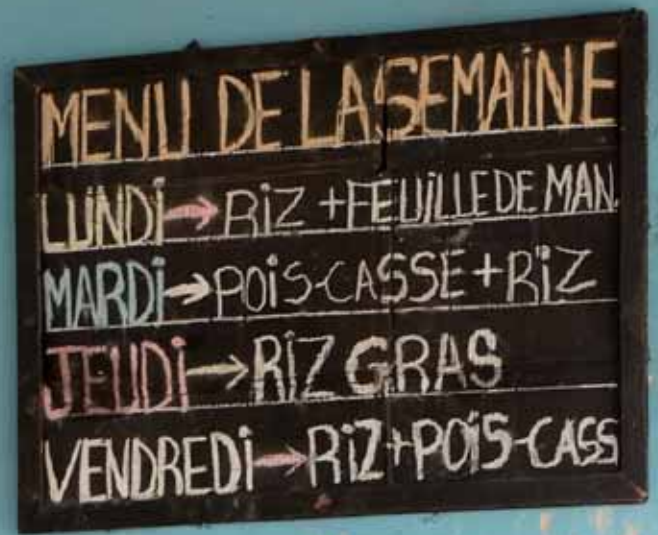 MENU DE LA SEMAINE
LUNDI → RIZ + FEUILLE DE MAN.
MARDI → POIS-CASSE + RIZ
JEUDI → RIZ GRAS
VENDREDI → RIZ + POIS-CASS